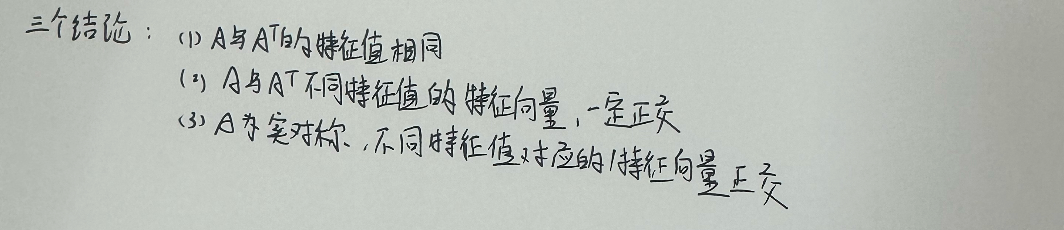 三个结论：(1) A与Aᵀ的特征值相同
(2) A与Aᵀ不同特征值的特征向量，一定正交
(3) A为实对称，不同特征值对应的特征向量正交